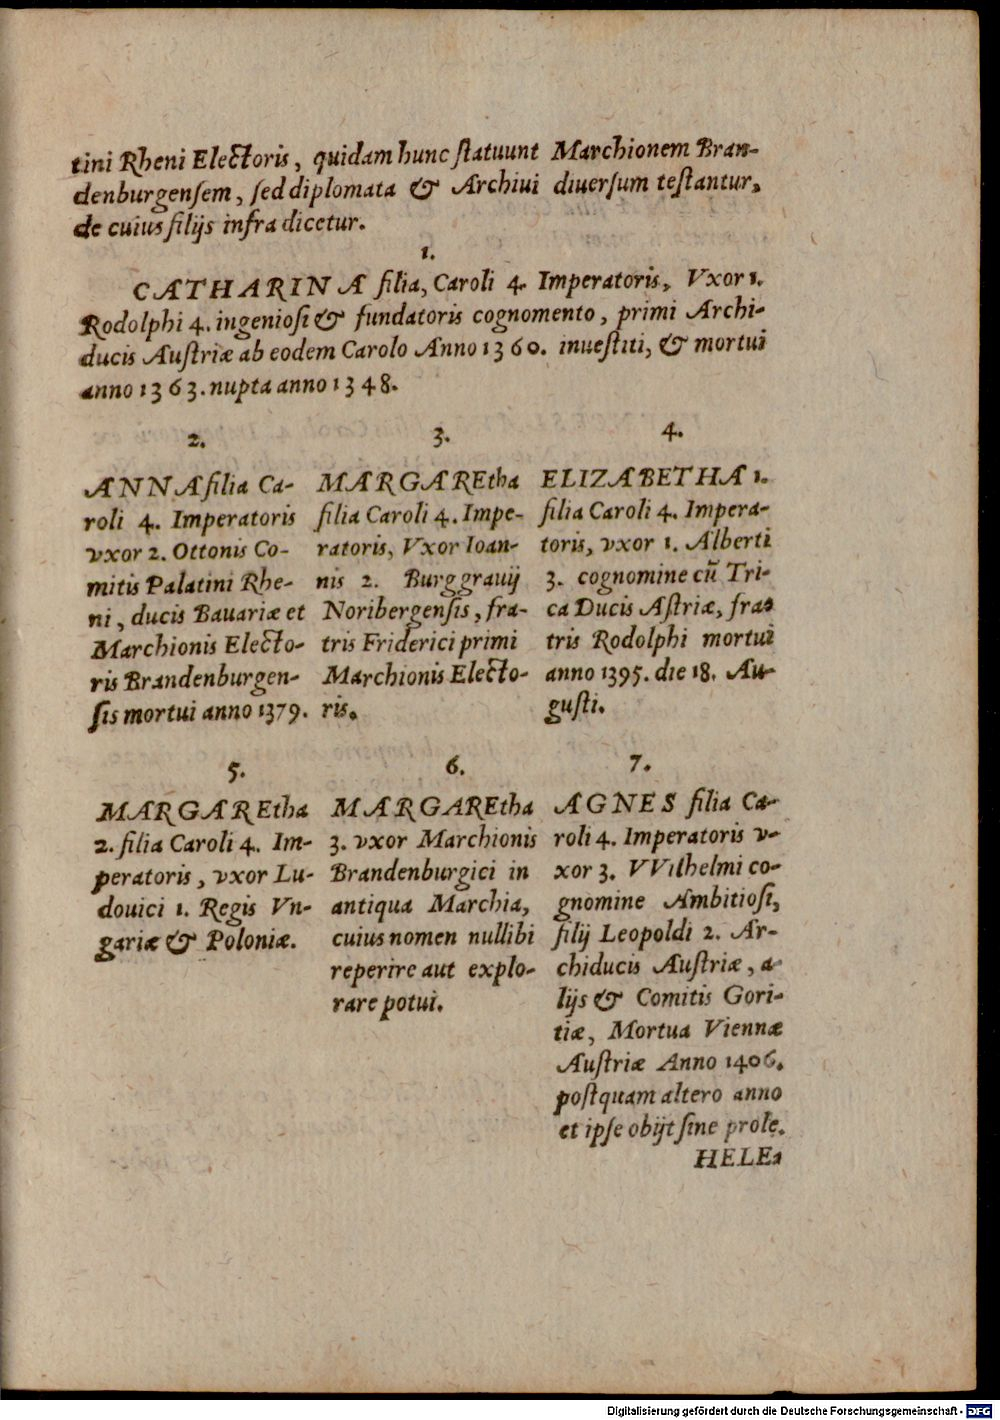 tini Rheni Electoris, quidam hunc ſtatuunt Marchionem Bran-
denburgenſem, ſed diplomata & Archiui diuerſum teſtantur,
de cuius filijs infra dicetur.
1.
CATHARINA filia, Caroli 4. Imperatoris, Vxor 1.
Rodolphi 4. ingenioſi & fundatoris cognomento, primi Archi-
ducis Auſtriæ ab eodem Carolo Anno 1360. inueſtiti, & mortui
anno 1363. nupta anno 1348.
2.
ANNA filia Ca-
roli 4. Imperatoris
vxor 2. Ottonis Co-
mitis Palatini Rhe-
ni, ducis Bauariæ et
Marchionis Electo-
ris Brandenburgen-
ſis mortui anno 1379.
3.
MARGAREtha
filia Caroli 4. Impe-
ratoris, Vxor Ioan-
nis 2. Burggrauij
Noribergenſis, fra-
tris Friderici primi
Marchionis Electo-
ris.
4.
ELIZABETHA 1.
filia Caroli 4. Impera-
toris, vxor 1. Alberti
3. cognomine cū Tri-
ca Ducis Aſtriæ, fra-
tris Rodolphi mortui
anno 1395. die 18. Au-
guſti.
5.
MARGAREtha
2. filia Caroli 4. Im-
peratoris, vxor Lu-
douici 1. Regis Vn-
gariæ & Poloniæ.
6.
MARGAREtha
3. vxor Marchionis
Brandenburgici in
antiqua Marchia,
cuius nomen nullibi
reperire aut explo-
rare potui.
7.
AGNES filia Ca-
roli 4. Imperatoris v-
xor 3. VVilhelmi co-
gnomine Ambitioſi,
filij Leopoldi 2. Ar-
chiducis Auſtriæ, a-
lijs & Comitis Gori-
tiæ, Mortua Viennæ
Auſtriæ Anno 1406.
poſtquam altero anno
et ipſe obijt ſine prole.
HELE-
Digitalisierung gefördert durch die Deutsche Forschungsgemeinschaft - DFG